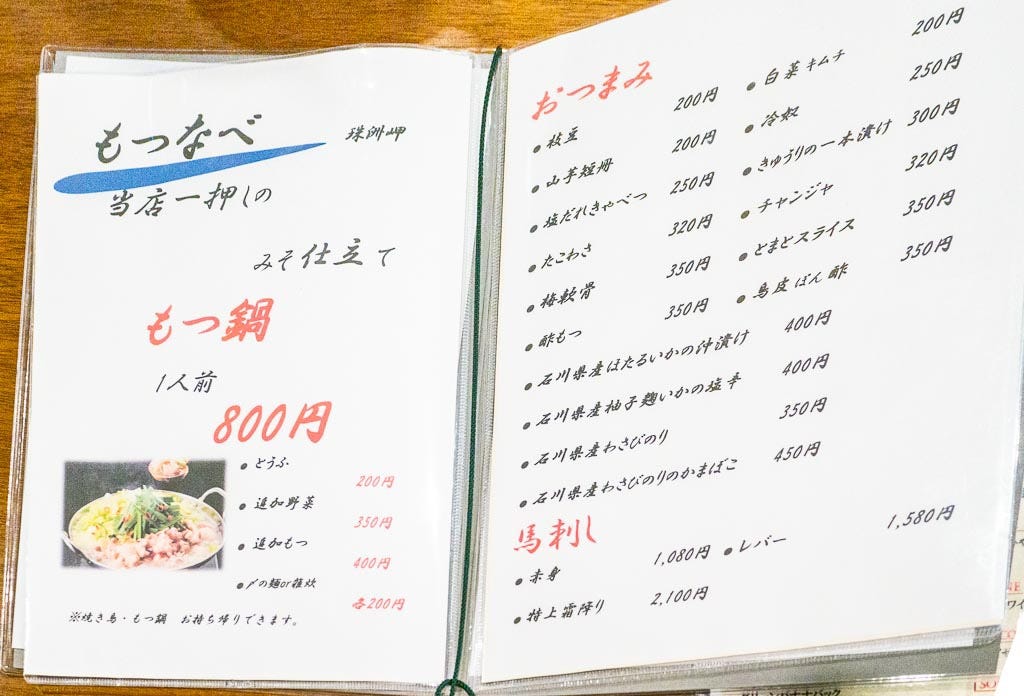 もつなべ 珠洲岬
当店一押しの
みそ仕立て
もつ鍋
1人前
800円
●とうふ 200円
●追加野菜 350円
●追加もつ 400円
●〆の麺or雑炊 各200円
※焼き鳥・もつ鍋 お持ち帰りできます。
おつまみ
●枝豆 200円 ●白菜キムチ 200円
●山芋短冊 200円 ●冷奴 250円
●塩だれきゃべつ 250円 ●きゅうりの一本漬け 300円
●たこわさ 320円 ●チャンジャ 320円
●梅軟骨 350円 ●とまとスライス 350円
●酢もつ 350円 ●鳥皮ぽん酢 350円
●石川県産ほたるいかの沖漬け 400円
●石川県産柚子麹いかの塩辛 400円
●石川県産わさびのり 350円
●石川県産わさびのりのかまぼこ 450円
馬刺し
●赤身 1,080円 ●レバー 1,580円
●特上霜降り 2,100円